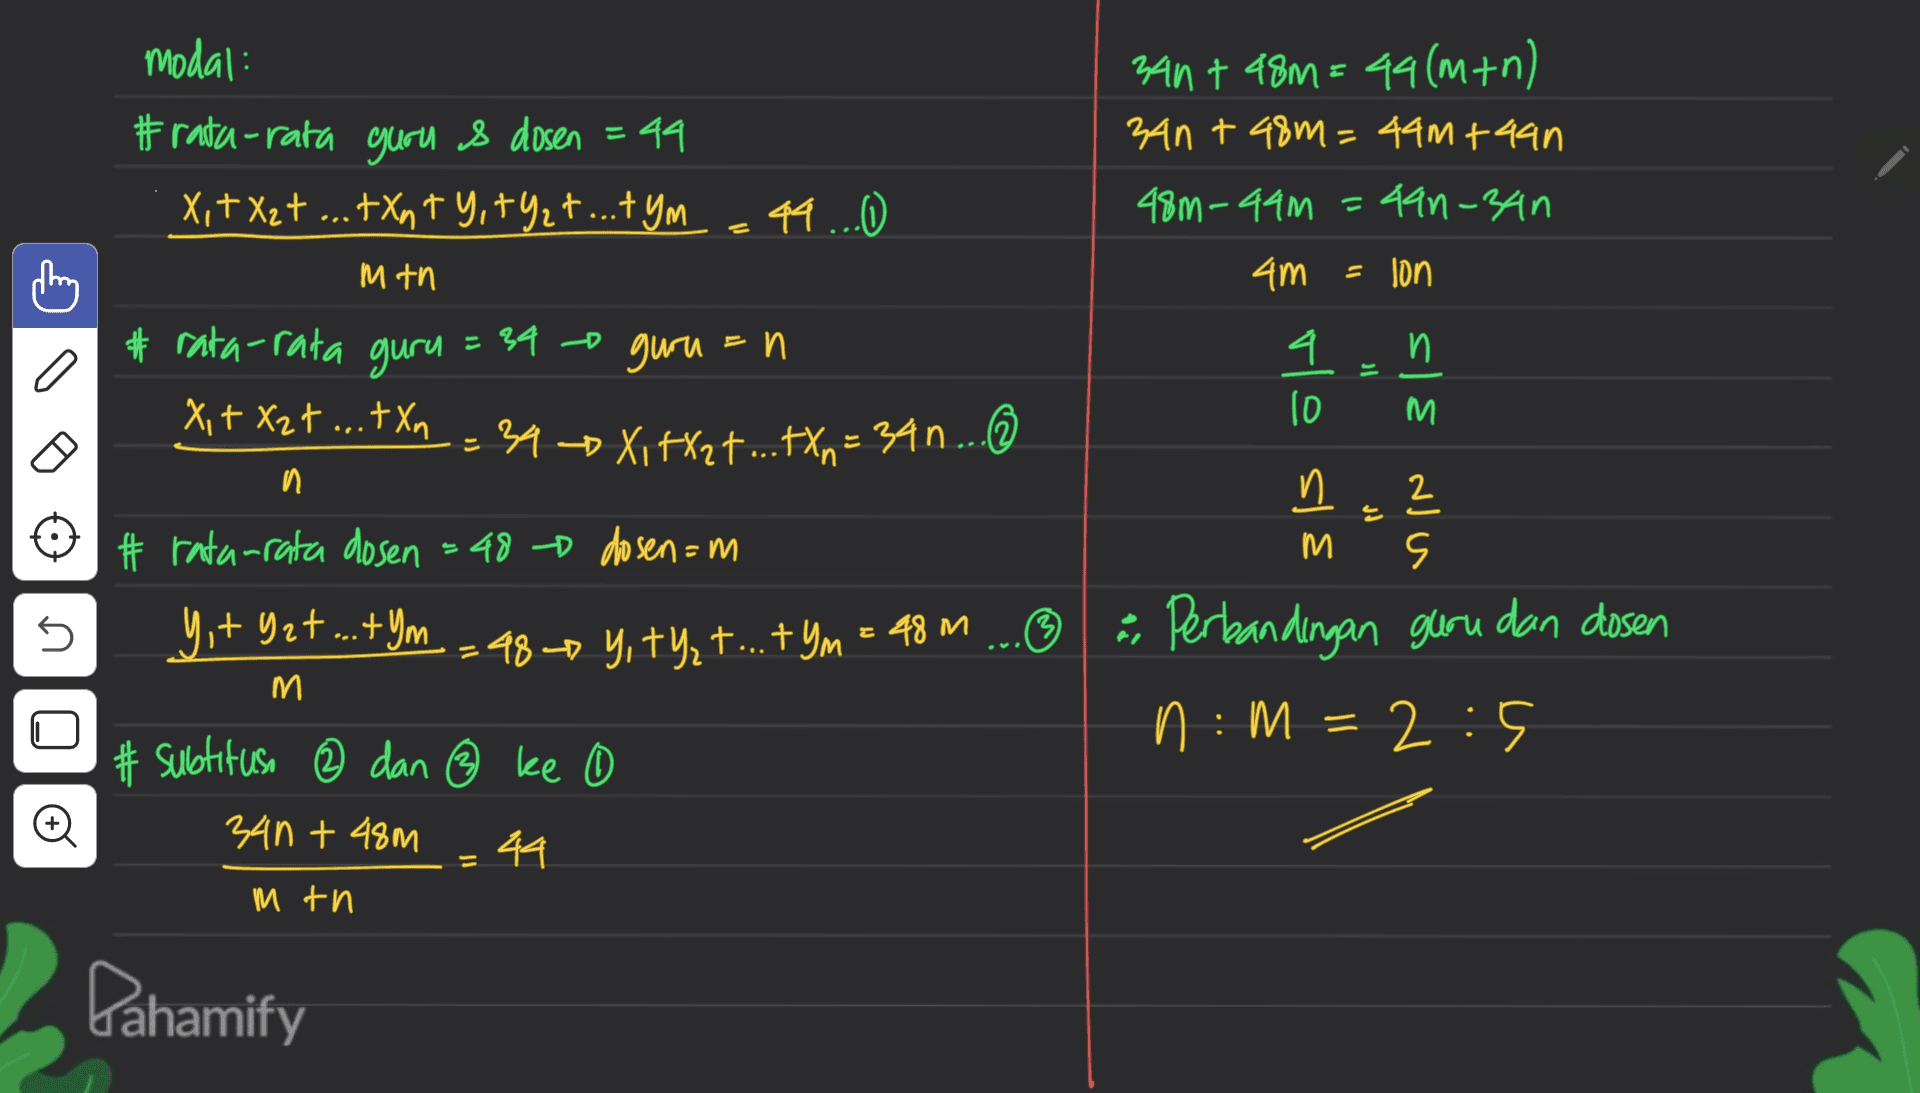 modal:
# rata-rata guru & dosen = 44
x₁+x₂+...+xₙ+y₁+y₂+...+yₘ = 44 ...①
m+n
# rata-rata guru = 34 → guru = n
x₁+x₂+...+xₙ = 34 → x₁+x₂+...+xₙ = 34n ...②
n
# rata-rata dosen = 48 → dosen = m
y₁+y₂+...+yₘ = 48 → y₁+y₂+...+yₘ = 48m ...③
m
# Subtitusi ② dan ③ ke ①
34n + 48m = 44
m+n
34n + 48m = 44(m+n)
34n + 48m = 44m+44n
48m-44m = 44n-34n
4m = 10n
4 = n
10 m
n = 2
m 5
∴ Perbandingan guru dan dosen
n : m = 2 : 5
Pahamify